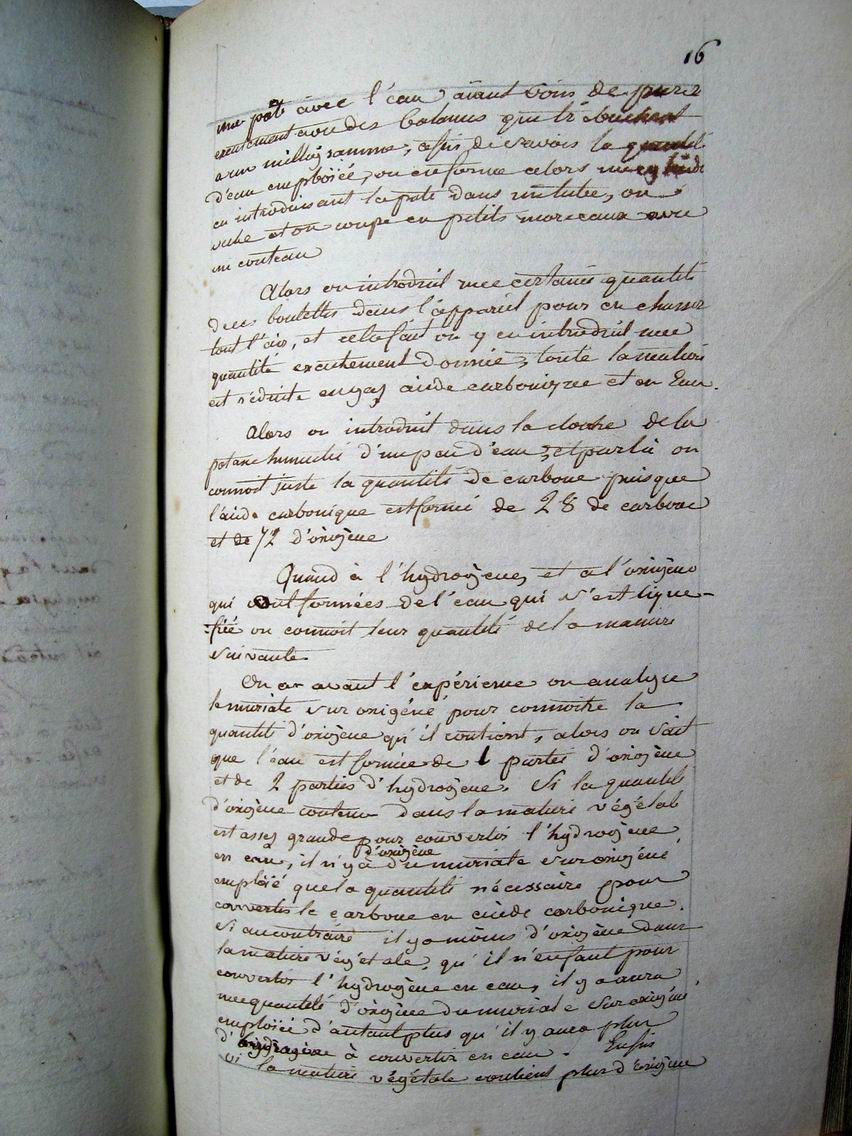 16
une pate avec l'eau, aiant soin de peser
exactement avec des balances qui trébuchent
a un milligramme, afin de savoir la quantité
d'eau emploïée, on en forme alors un cylindre
en introduisant la pate dans un tube, on
seche et on coupe en petits morceaux avec
un couteau
Alors on introduit une certaine quantité
de ces boulettes dans l'appareil pour en chasser
tout l'air, et cela fait on y en introduit une
quantité exactement donnée, toute la matiere
est réduite en gaz acide carbonique et en Eau.
Alors on introduit dans la cloche de la
potasse humectée d'un peu d'eau, et par là on
connoit juste la quantité de carbone puisque
l'acide carbonique est formé de 28 de carbone
et de 72 d'oxigène
Quand à l'hydrogène, et a l'oxigène
qui sont formées de l'eau qui s'est liqué-
fiée on connoit leur quantité de la maniere
suivante
On a avant l'expérience on analyse
le muriate sur oxigéné pour connoitre la
quantité d'oxigène qu'il contient, alors on sait
que l'eau est formée de 1 parties d'oxigène
et de 2 parties d'hydrogène. Si la quantité
d'oxigène contenu dans la matiere végétale
est assez grande pour convertir l'hydrogène
en eau, il n'y a d'oxigène du muriate suroxigéné
emploié que la quantité nécessaire pour
convertir le carbone en acide carbonique.
Si au contraire il y a moins d'oxigène dans
la matiere végétale, qu'il n'en faut pour
convertir l'hydrogène en eau, il y aura
une quantité d'oxigène du muriate sur oxigéné
emploiée d'autant plus qu'il y aura plus
d'hydrogène à convertir en eau. Enfin
si la matiere végétale contient plus d'oxigène